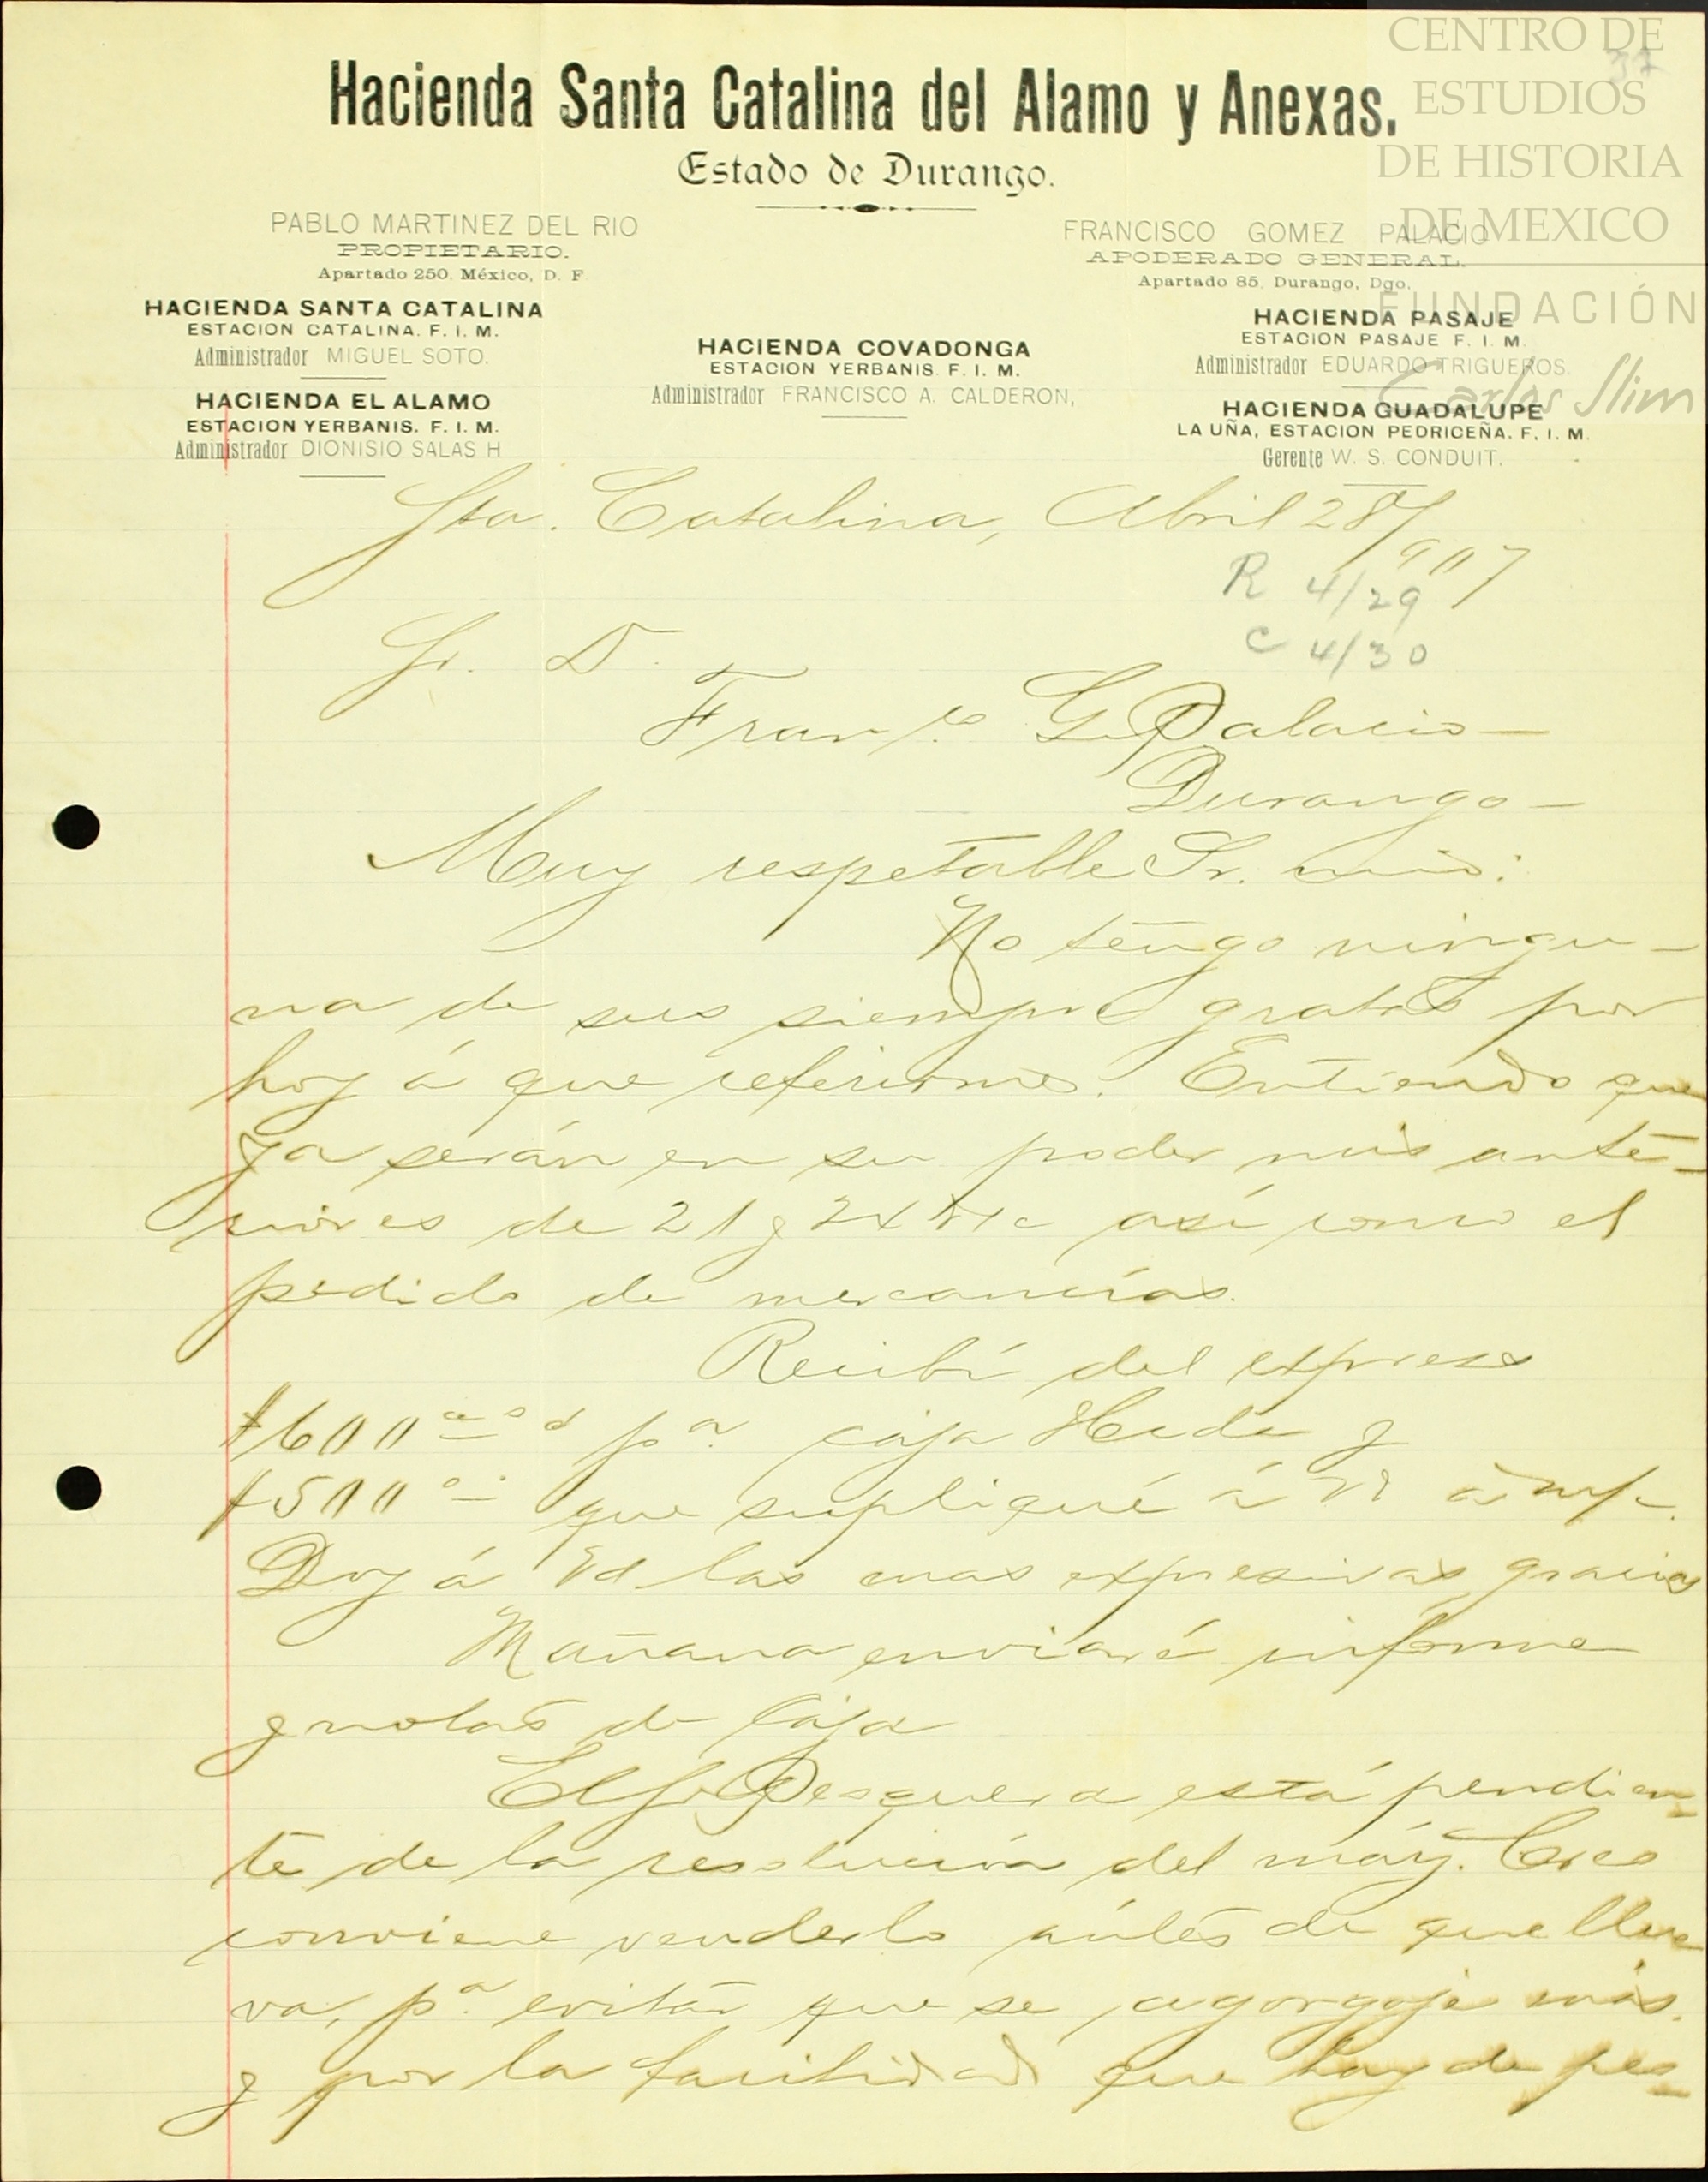 CENTRO DE
ESTUDIOS
DE HISTORIA
DE MEXICO
FUNDACIÓN
Carlos Slim
37
Hacienda Santa Catalina del Alamo y Anexas.
Estado de Durango.
PABLO MARTINEZ DEL RIO
PROPIETARIO.
Apartado 250. México, D. F.
FRANCISCO GOMEZ PALACIO
APODERADO GENERAL.
Apartado 85, Durango, Dgo.
HACIENDA SANTA CATALINA
ESTACION CATALINA. F. I. M.
Administrador MIGUEL SOTO.
HACIENDA EL ALAMO
ESTACION YERBANIS. F. I. M.
Administrador DIONISIO SALAS H
HACIENDA COVADONGA
ESTACION YERBANIS. F. I. M.
Administrador FRANCISCO A. CALDERON,
HACIENDA PASAJE
ESTACION PASAJE F. I. M.
Administrador EDUARDO TRIGUEROS.
HACIENDA GUADALUPE
LA UÑA, ESTACION PEDRICEÑA. F. I. M.
Gerente W. S. CONDUIT.
Sta. Catalina, Abril 28/
907
R 4/29
C 4/30
Sr. D.
Franco. G. Palacio—
Durango—
Muy respetable Sr. mío:
No tengo ningu-
na de sus siempre gratas por
hoy á que referirme. Entiendo que
ya serán en su poder mis ante-
riores de 21 y así como el
pedido de mercancías.
Recibí del express
$600 pa. caja Hcda y
$500 que supliqué á
Doy á Vd las mas expresivas gracias
Mañana enviaré informe
y notas de Caja
El Sr. Pesquera está pendien-
te de la resolución del maíz. Creo
conviene venderlo ántes de que llue
va, pa. evitar que se agorgoje más.
y por la facilidad que hay de pes-